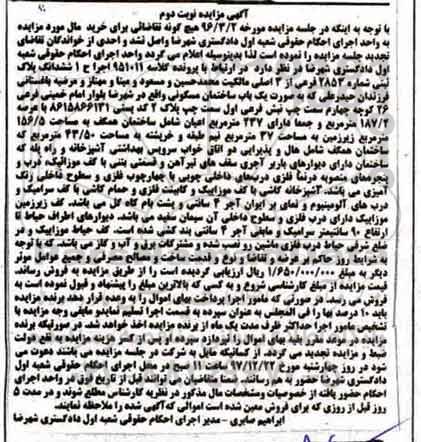 آگهی مزایده نوبت دوم
با توجه به اینکه در جلسه مزایده مورخه ۹۶/۳/۲ هیچ گونه تقاضائی برای خرید مال مورد مزایده
به واحد اجرای احکام حقوقی شعبه اول دادگستری شهرضا واصل نشد و احدی از خواندگان تقاضای
تجدید جلسه مزایده را نموده است لذا بدینوسیله اعلام می گردد واحد اجرای احکام حقوقی شعبه
اول دادگستری شهرضا در نظر دارد در ارتباط با پرونده کلاسه ۹۵۱۰۱۱ اجرا ح ۱ ششدانگ پلاک
ثبتی شماره ۱۲۸۵۲ فرعی از ۲ اصلی مالکیت محمدحسین و مسعود و مینا و مهناز و مرضیه باغستانی
فرزندان حیدرعلی که به صورت یک باب ساختمان مسکونی واقع در شهرضا بلوار امام خمینی فرعی
۲۶ کوچه چهارم سمت چپ نبش فرعی اول سمت چپ پلاک ۲ کد پستی ۸۶۱۵۸۶۶۱۳۱ با عرصه
۱۸۷/۲ مترمربع و جمعا دارای ۲۳۷ مترمربع اعیان شامل ساختمان همکف به مساحت ۱۵۶/۵
مترمربع زیرزمین به مساحت ۳۷ مترمربع نیم طبقه و خرپشته به مساحت ۴۳/۵۰ مترمربع که
ساختمان همکف شامل هال و پذیرایی دو اتاق خواب سرویس بهداشتی آشپزخانه و راه پله که
ساختمان دارای دیوارهای باربر آجری سقف های تیرآهن و قسمتی بتنی با کف موزائیک، درب و
پنجره های منصوبه درنما فلزی درب‌های داخلی چوبی با چهارچوب فلزی و سطوح داخلی رنگ
آمیزی می باشد. آشپزخانه کاشی با کف موزاییک و کابینت فلزی و حمام کاشی با کف سرامیک و
درب های آلومینیوم و نمای بر ایوان آجر ۴ سانتی و پشت بام کاه گل می باشد. کف زیرزمین
موزاییک دارای درب فلزی و سطوح داخلی آن سیمان سفید می باشد. دیوارهای اطراف حیاط تا
ارتفاع ۹۰ سانتیمتر سرامیک و مابقی آجر ۴ سانتی بند کشی شده است. کف حیاط موزاییک و در
ضلع شرقی حیاط درب فلزی ماشین رو نصب شده و مشترکات برق و آب و گاز می باشد. که با توجه
به شرایط روز حاکم بر عرضه و تقاضا و نوع و قدمت ساخت و مصالح مصرفی و جمیع عوامل موثر
دیگر به مبلغ ۱/۶۵۰/۰۰۰/۰۰۰ ریال ارزیابی گردیده است را از طریق مزایده به فروش رساند.
قیمت مزایده از مبلغ کارشناسی شروع و به کسی که بالاترین مبلغ را پیشنهاد و قبول نموده است به
فروش می رسد. در صورتی که مامور اجرا پرداخت بهای اموال را به وعده قرار دهد برنده مزایده
باید ۱۰ درصد بها را فی المجلس به عنوان سپرده به قسمت اجرا تسلیم نماید و مابقی وجه مزایده با
تشخیص مامور اجرا حداکثر ظرف مدت یک ماه از برنده مزایده اخذ خواهد شد. در صورتیکه برنده
مزایده در موعد مقرر بقیه بهای اموال را نپردازد سپرده او پس از کسر هزینه مزایده به نفع دولت
ضبط و مزایده تجدید می گردد. از کسانیکه مایل به شرکت در جلسه مزایده می باشند دعوت می
شود در روز چهارشنبه مورخ ساعت ۱۱ صبح در محل اجرای احکام حقوقی شعبه اول
دادگستری شهرضا حضور به هم رسانند. ضمنا متقاضیان می توانند قبل از تاریخ فوق در واحد اجرای
احکام حضور یافته از خصوصیات و مشخصات مال مذکور در نظریه کارشناسی مطلع شوند و در مدت ۵
روز قبل از روزی که برای فروش معین شده است اموالی که آگهی شده را ملاحظه نمایند.
ابراهیم صابری - مدیر اجرای احکام حقوقی شعبه اول دادگستری شهرضا